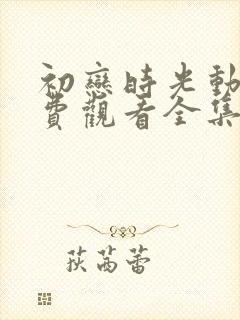 初戀時光動
費觀看全集
荻芮蕾